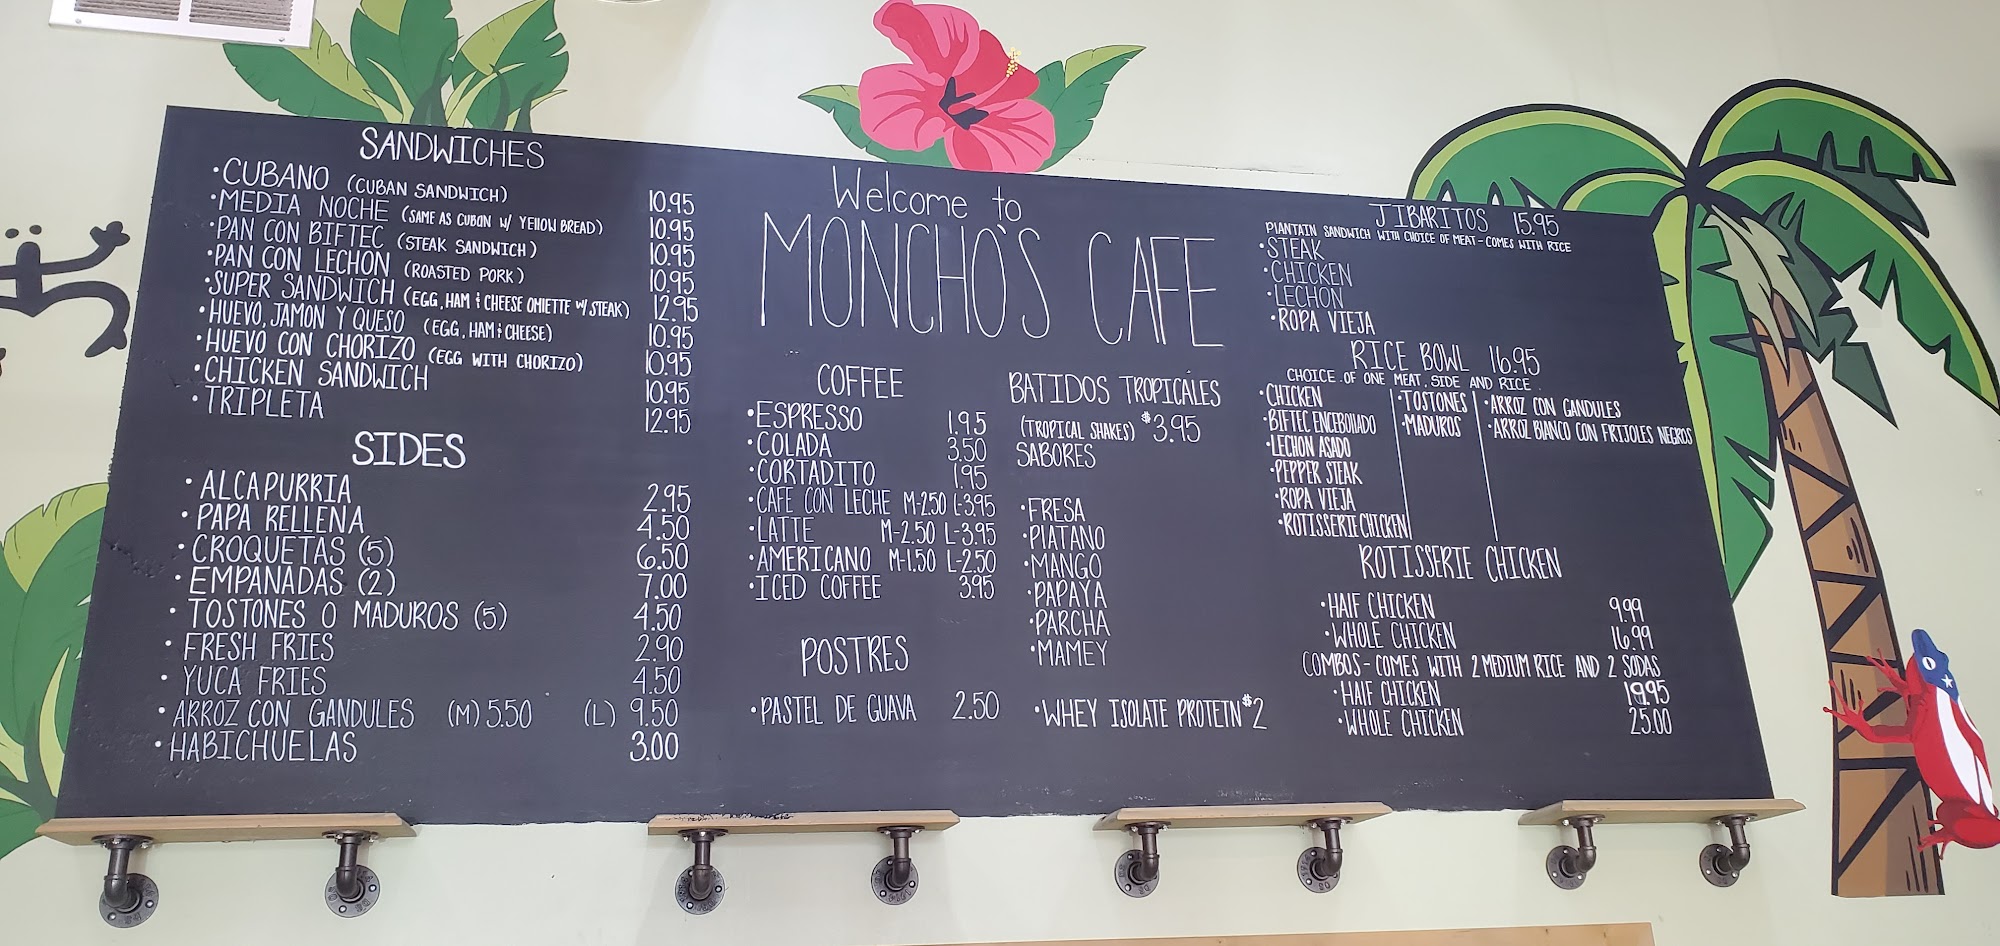 SANDWICHES
• CUBANO (CUBAN SANDWICH) 10.95
• MEDIA NOCHE (SAME AS CUBAN W/ YELLOW BREAD) 10.95
• PAN CON BIFTEC (STEAK SANDWICH) 10.95
• PAN CON LECHON (ROASTED PORK) 10.95
• SUPER SANDWICH (EGG, HAM & CHEESE OMLETTE W/ STEAK) 12.95
• HUEVO, JAMON Y QUESO (EGG, HAM & CHEESE) 10.95
• HUEVO CON CHORIZO (EGG WITH CHORIZO) 10.95
• CHICKEN SANDWICH 10.95
• TRIPLETA 12.95
SIDES
• ALCAPURRIA 2.95
• PAPA RELLENA 4.50
• CROQUETAS (5) 6.50
• EMPANADAS (2) 7.00
• TOSTONES O MADUROS (5) 4.50
• FRESH FRIES 2.90
• YUCA FRIES 4.50
• ARROZ CON GANDULES (M) 5.50 (L) 9.50
• HABICHUELAS 3.00
Welcome to
MONCHO'S CAFE
COFFEE
• ESPRESSO 1.95
• COLADA 3.50
• CORTADITO 1.95
• CAFE CON LECHE M-2.50 L-3.95
• LATTE M-2.50 L-3.95
• AMERICANO M-1.50 L-2.50
• ICED COFFEE 3.95
POSTRES
• PASTEL DE GUAVA 2.50
BATIDOS TROPICALES
(TROPICAL SHAKES) $3.95
SABORES
• FRESA
• PLATANO
• MANGO
• PAPAYA
• PARCHA
• MAMEY
• WHEY ISOLATE PROTEIN $2
JIBARITOS 15.95
PLANTAIN SANDWICH WITH CHOICE OF MEAT - COMES WITH RICE
• STEAK
• CHICKEN
• LECHON
• ROPA VIEJA
RICE BOWL 16.95
CHOICE OF ONE MEAT, SIDE AND RICE
• CHICKEN
• BIFTEC ENCEBOLLADO
• LECHON ASADO
• PEPPER STEAK
• ROPA VIEJA
• ROTISSERIE CHICKEN
• TOSTONES
• MADUROS
• ARROZ CON GANDULES
• ARROZ BLANCO CON FRIJOLES NEGROS
ROTISSERIE CHICKEN
• HALF CHICKEN 9.99
• WHOLE CHICKEN 16.99
COMBOS - COMES WITH 2 MEDIUM RICE AND 2 SODAS
• HALF CHICKEN 19.95
• WHOLE CHICKEN 25.00